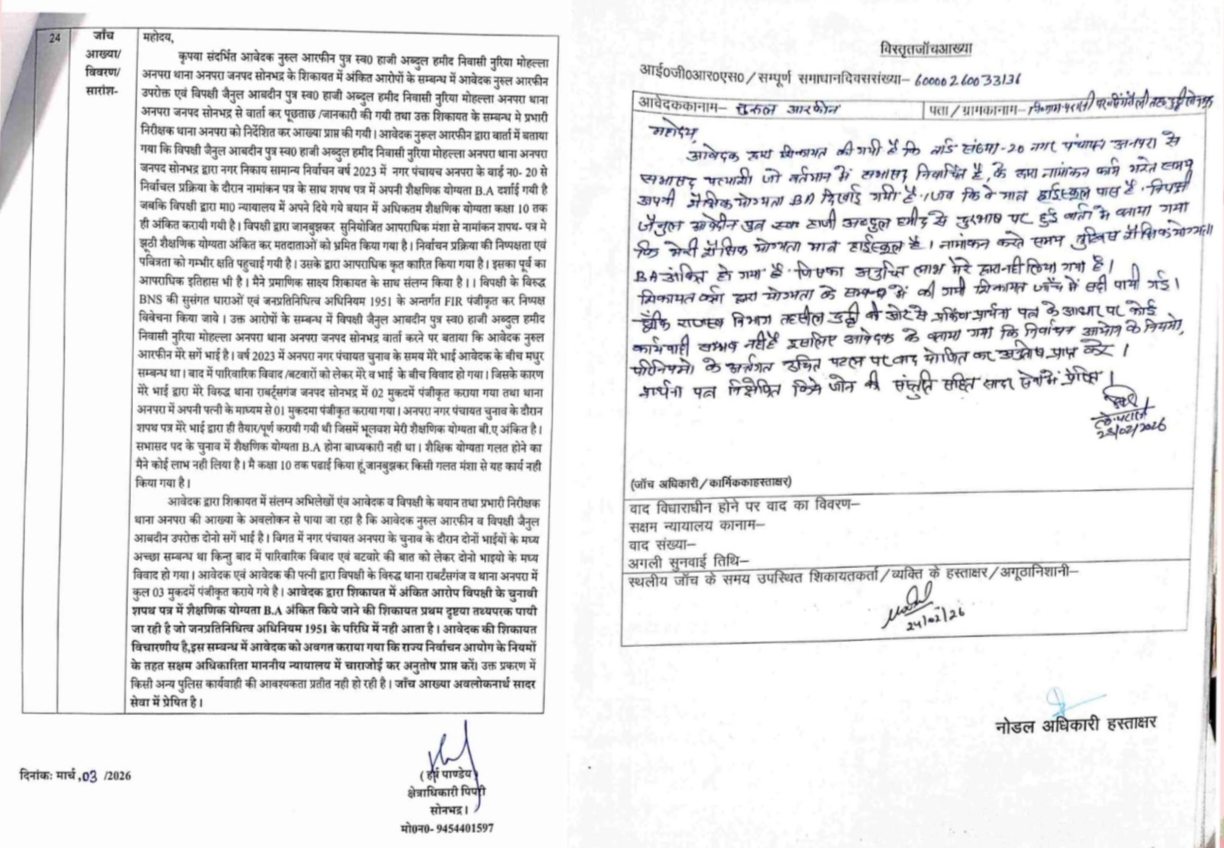 24
जाँच
आख्या/
विवरण/
सारांश-
महोदय,
कृपया संदर्भित आवेदक नुरुल आरफीन पुत्र स्व0 हाजी अब्दुल हमीद निवासी नुरिया मोहल्ला
अनपरा थाना अनपरा जनपद सोनभद्र के शिकायत में अंकित आरोपों के सम्बन्ध में आवेदक नुरुल आरफीन
उपरोक्त एवं विपक्षी जैनुल आबदीन पुत्र स्व0 हाजी अब्दुल हमीद निवासी नुरिया मोहल्ला अनपरा थाना
अनपरा जनपद सोनभद्र से वार्ता कर पूछताछ /जानकारी की गयी तथा उक्त शिकायत के सम्बन्ध मे प्रभारी
निरीक्षक थाना अनपरा को निर्देशित कर आख्या प्राप्त की गयी। आवेदक नुरुल आरफीन द्वारा वार्ता में बताया
गया कि विपक्षी जैनुल आबदीन पुत्र स्व0 हाजी अब्दुल हमीद निवासी नुरिया मोहल्ला अनपरा थाना अनपरा
जनपद सोनभद्र द्वारा नगर निकाय सामान्य निर्वाचन वर्ष 2023 में नगर पंचायच अनपरा के वाई न0- 20 से
निर्वाचल प्रक्रिया के दौरान नामांकन पत्र के साथ शपथ पत्र में अपनी शैक्षणिक योग्यता B.A दर्शाई गयी है
जबकि विपक्षी द्वारा मा0 न्यायालय में अपने दिये गये बयान में अधिकतम शैक्षणिक योग्यता कक्षा 10 तक
ही अंकित करायी गयी है। विपक्षी द्वारा जानबुझकर सुनियोजित आपराधिक मंशा से नामांकन शपथ- पत्र मे
झूठी शैक्षणिक योग्यता अंकित कर मतदाताओं को भ्रमित किया गया है। निर्वाचन प्रक्रिया की निष्पक्षता एवं
पवित्रता को गम्भीर क्षति पहुचाई गयी है। उसके द्वारा आपराधिक कृत कारित किया गया है। इसका पूर्व का
आपराधिक इतिहास भी है। मैने प्रमाणिक साक्ष्य शिकायत के साथ संलग्न किया है।। विपक्षी के विरुद्ध
BNS की सुसंगत धाराओं एवं जनप्रतिनिधित्व अधिनियम 1951 के अन्तर्गत FIR पंजीकृत कर निष्पक्ष
विवेचना किया जाये। उक्त आरोपों के सम्बन्ध में विपक्षी जैनुल आबदीन पुत्र स्व0 हाजी अब्दुल हमीद
निवासी नुरिया मोहल्ला अनपरा थाना अनपरा जनपद सोनभद्र वार्ता करने पर बताया कि आवेदक नुरुल
आरफीन मेरे सगें भाई है। वर्ष 2023 में अनपरा नगर पंचायत चुनाव के समय मेरे भाई आवेदक के बीच मधुर
सम्बन्ध था। बाद में पारिवारिक विवाद /बटवारों को लेकर मेरे व भाई के बीच विवाद हो गया। जिसके कारण
मेरे भाई द्वारा मेरे विरुद्ध थाना राबर्ट्सगंज जनपद सोनभद्र में 02 मुकदमें पंजीकृत कराया गया तथा थाना
अनपरा में अपनी पत्नी के माध्यम से 01 मुकदमा पंजीकृत कराया गया। अनपरा नगर पंचायत चुनाव के दौरान
शपथ पत्र मेरे भाई द्वारा ही तैयार/पूर्ण करायी गयी थी जिसमें भूलवश मेरी शैक्षणिक योग्यता बी.ए अंकित है।
सभासद पद के चुनाव में शैक्षणिक योग्यता B.A होना बाध्यकारी नही था। शैक्षिक योग्यता गलत होने का
मैने कोई लाभ नही लिया है। मै कक्षा 10 तक पढाई किया हूं,जानबुझकर किसी गलत मंशा से यह कार्य नही
किया गया है।
आवेदक द्वारा शिकायत में संलग्न अभिलेखों एंव आवेदक व विपक्षी के बयान तथा प्रभारी निरीक्षक
थाना अनपरा की आख्या के अवलोकन से पाया जा रहा है कि आवेदक नुरुल आरफीन व विपक्षी जैनुल
आबदीन उपरोक्त दोनो सगें भाई है। विगत में नगर पंचायत अनपरा के चुनाव के दौरान दोनों भाईयों के मध्य
अच्छा सम्बन्ध था किन्तु बाद में पारिवारिक विवाद एवं बटवारे की बात को लेकर दोनो भाइयो के मध्य
विवाद हो गया। आवेदक एवं आवेदक की पत्नी द्वारा विपक्षी के विरुद्ध थाना राबर्टसगंज व थाना अनपरा में
कुल 03 मुकदमें पंजीकृत कराये गये है। आवेदक द्वारा शिकायत में अंकित आरोप विपक्षी के चुनावी
शपथ पत्र में शैक्षणिक योग्यता B.A अंकित किये जाने की शिकायत प्रथम दृष्टया तथ्यपरक पायी
जा रही है जो जनप्रतिनिधित्व अधिनियम 1951 के परिधि में नही आता है। आवेदक की शिकायत
विचारणीय है,इस सम्बन्ध में आवेदक को अवगत कराया गया कि राज्य निर्वाचन आयोग के नियमों
के तहत सक्षम अधिकारिता माननीय न्यायालय में चाराजोई कर अनुतोष प्राप्त करें। उक्त प्रकरण में
किसी अन्य पुलिस कार्यवाही की आवश्यकता प्रतीत नही हो रही है। जाँच आख्या अवलोकनार्थ सादर
सेवा में प्रेषित है।
दिनांकः मार्च ,03 /2026
(हर्ष पाण्डेय)
क्षेत्राधिकारी पिपरी
सोनभद्र।
मो0न0- 9454401597
विस्तृतजाँचआख्या
आई0जी0आर0एस0/सम्पूर्ण समाधानदिवससंख्या– 60000260033136
आवेदककानाम– नुरुल आरफीन पता/ग्रामकानाम–
महोदय,
आवेदक द्वारा शिकायत की गयी है कि वार्ड संख्या-20 नगर पंचायत अनपरा से
सभासद प्रत्याशी जो वर्तमान में सभासद निर्वाचित है, के द्वारा नामांकन फार्म भरते समय
अपनी शैक्षिक योग्यता BA दिखाई गयी है। जब कि वे मात्र हाईस्कूल पास है। विपक्षी
जैनुल आबेदीन पुत्र स्व० हाजी अब्दुल हमीद से दुरभाष पर हुई वार्ता में बताया गया
कि मेरी शैक्षिक योग्यता मात्र हाईस्कूल है। नामांकन करते समय त्रुटिवश शैक्षिक योग्यता
BA अंकित हो गया है जिसका अनुचित लाभ मेरे द्वारा नही लिया गया है।
शिकायत कर्ता द्वारा योग्यता के सम्बन्ध में की गयी शिकायत जाँच में सही पायी गई।
चूँकि राजस्व विभाग तहसील दुद्धी के ओर से प्रार्थना पत्र के आधार पर कोई
कार्यवाही सम्भव नही है इसलिए आवेदक को बताया गया कि निर्वाचन आयोग के नियमों,
परिनियमो के अर्न्तगत उचित पटल पर वाद योजित कर अनुतोष प्राप्त करे।
प्रार्थना पत्र निक्षेपित किये जाने की संस्तुति सहित सादर सेवा में प्रेषित।
लेखपाल
23/02/2026
(जाँच अधिकारी/कार्मिककाहस्ताक्षर)
वाद विधाराधीन होने पर वाद का विवरण–
सक्षम न्यायालय कानाम–
वाद संख्या–
अगली सुनवाई तिथि–
स्थलीय जाँच के समय उपस्थित शिकायतकर्ता/व्यक्ति के हस्ताक्षर/अगूठानिशानी–
24/02/26
नोडल अधिकारी हस्ताक्षर